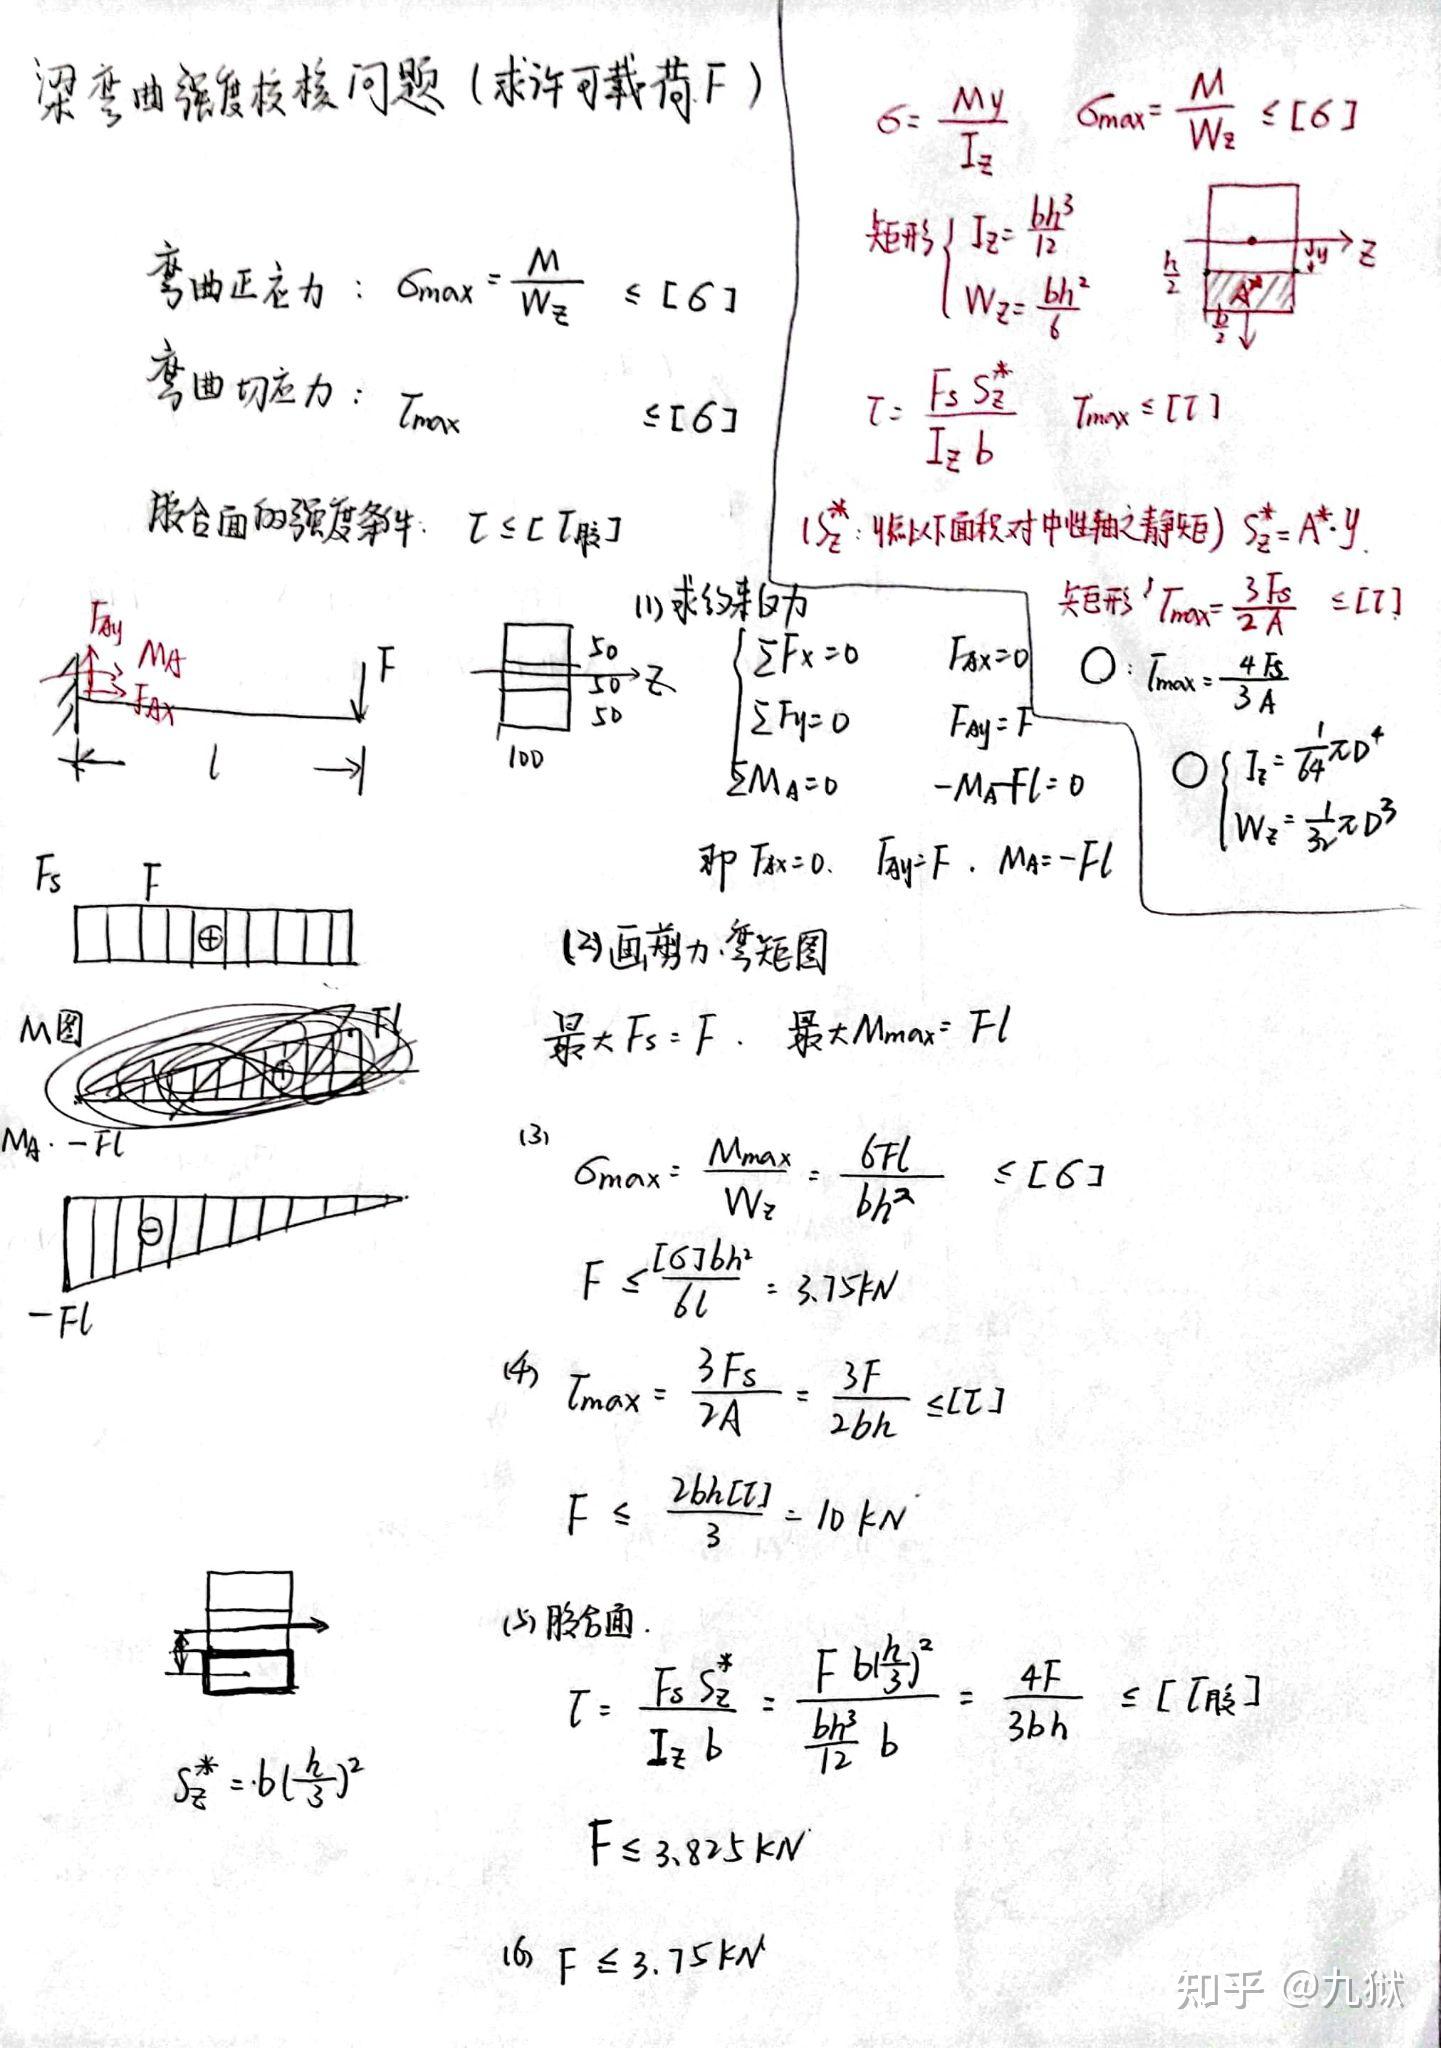 梁弯曲强度校核问题(求许可载荷F)
弯曲正应力: σmax = M/Wz ≤ [σ]
弯曲切应力: τmax ≤ [σ]
胶合面的强度条件: τ ≤ [τ胶]
σ = My/Iz σmax = M/Wz ≤ [σ]
矩形 { Iz = bh³/12
Wz = bh²/6
h/2 y Z
A*
h/2
τ = Fs Sz*/Iz b τmax ≤ [τ]
(Sz*: y点以下面积对中性轴之静矩) Sz* = A*·y.
矩形: τmax = 3Fs/2A ≤ [τ]
○: τmax = 4Fs/3A
○ { Iz = 1/64 πD⁴
Wz = 1/32 πD³
FAy MA F
FAx
l
50
Z
50
50
100
(1) 求约束反力
{ ΣFx=0 FAx=0
ΣFy=0 FAy=F
ΣMA=0 -MA-Fl=0
即 FAx=0. FAy=F. MA=-Fl
Fs F
⊕
M图 Fl
MA. -Fl
⊖
-Fl
(2) 画剪力.弯矩图
最大Fs = F. 最大Mmax = Fl
(3)
σmax = Mmax/Wz = 6Fl/bh² ≤ [σ]
F ≤ [σ]bh²/6l = 3.75KN
(4) τmax = 3Fs/2A = 3F/2bh ≤ [τ]
F ≤ 2bh[τ]/3 = 10 KN
(5) 胶合面.
τ = Fs Sz*/Iz b = F b(h/3)²/(bh³/12 b) = 4F/3bh ≤ [τ胶]
Sz* = b(h/3)²
F ≤ 3.825KN
(6) F ≤ 3.75KN
知乎 @九狱